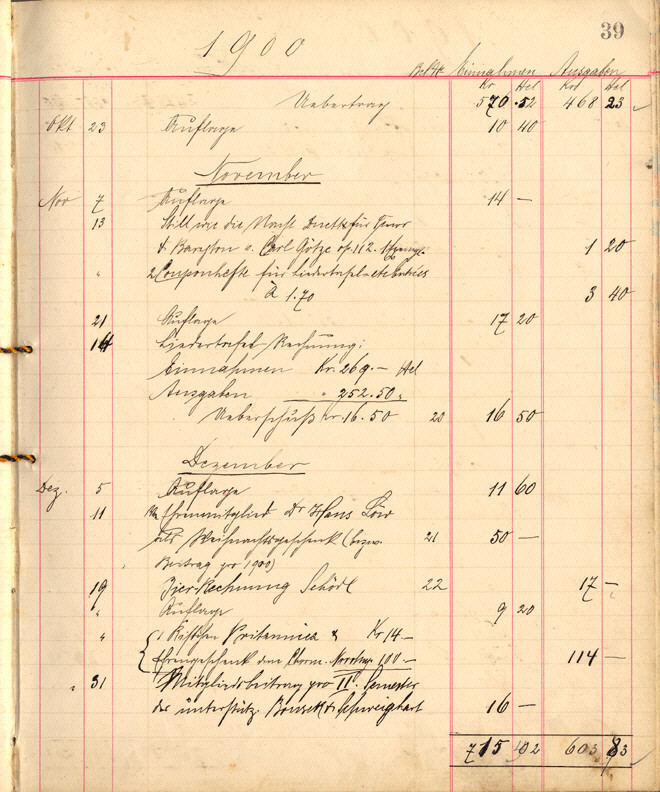 39
1900
Beil № Einnahmen Ausgaben
Kr Hel Kro Hal
Uebertrag 570 52 468 23
Okt 23 Auflage 10 40
November
Nov 7 Auflage 14 —
13 Still wie die Nacht Duett für Tenor
u. Baryton v. Carl Götze op. 112. 1 20
" 2 Couponhefte für Liedertafel-
à 1.70 3 40
21 Auflage 17 20
14 Liedertafel-Rechnung:
Einnahmen Kr. 269.— Hel
Ausgaben " 252.50 "
Ueberschuß Kr. 16.50 20 16 50
Dezember
Dez. 5 Auflage 11 60
11 Ehrenmitglied Dr Hans Löw
als Weihnachtsgeschenk (bezw. 21 50 —
Beitrag pro 1900)
19 Bier-Rechnung Schödl 22 17 —
" Auflage 9 20
" 1 Kistchen Britannica & Kr 14 —
Ehrengeschenk dem Chorm. 100 — 114 —
" 31 Mitgliedsbeitrag pro II. Semester
der unterstütz. & Schweighart 16 —
715 02 603 83